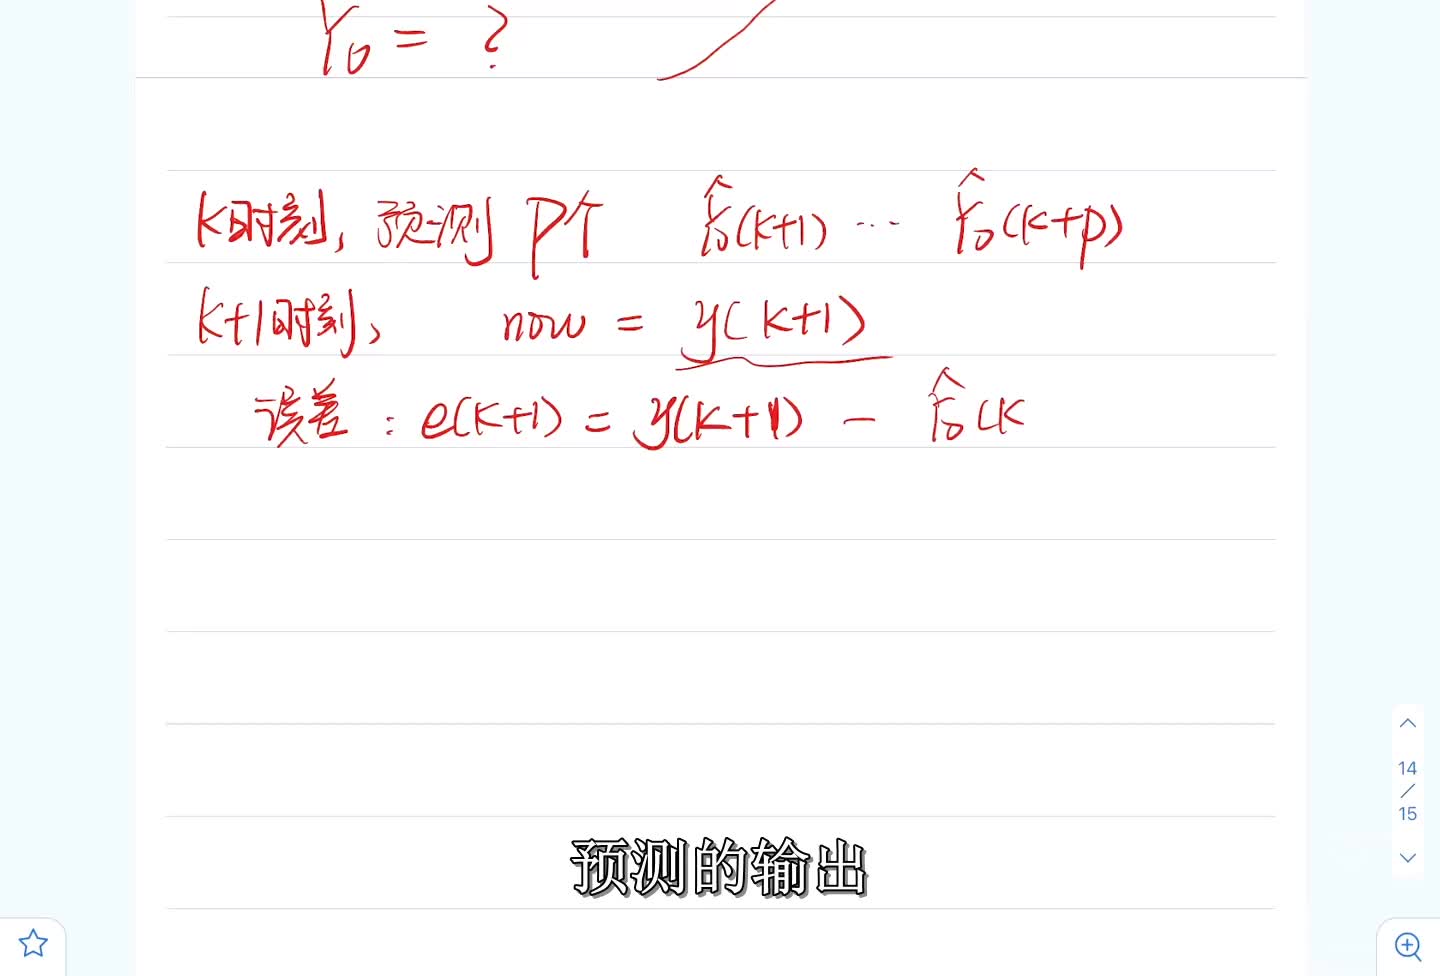 Y₀ = ?
k时刻, 预测 P个 Ŷ₀(k+1) ... Ŷ₀(k+p)
k+1时刻, now = y(k+1)
误差: e(k+1) = y(k+1) - Ŷ₀(k
14
/
15
预测的输出